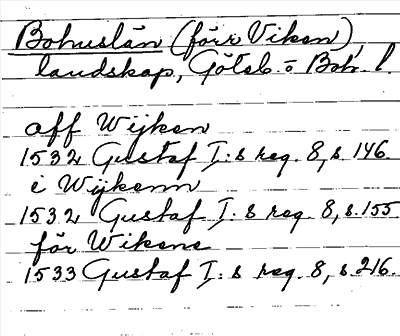 Bohuslän (förr Viken),
landskap, Göteb. o Boh. l.
aff Wijken
1532 Gustaf I:s reg. 8, s. 146.
i Wijkenn
1532 Gustaf I:s reg. 8, s. 155
för Wikene
1533 Gustaf I:s reg. 8, s. 216.